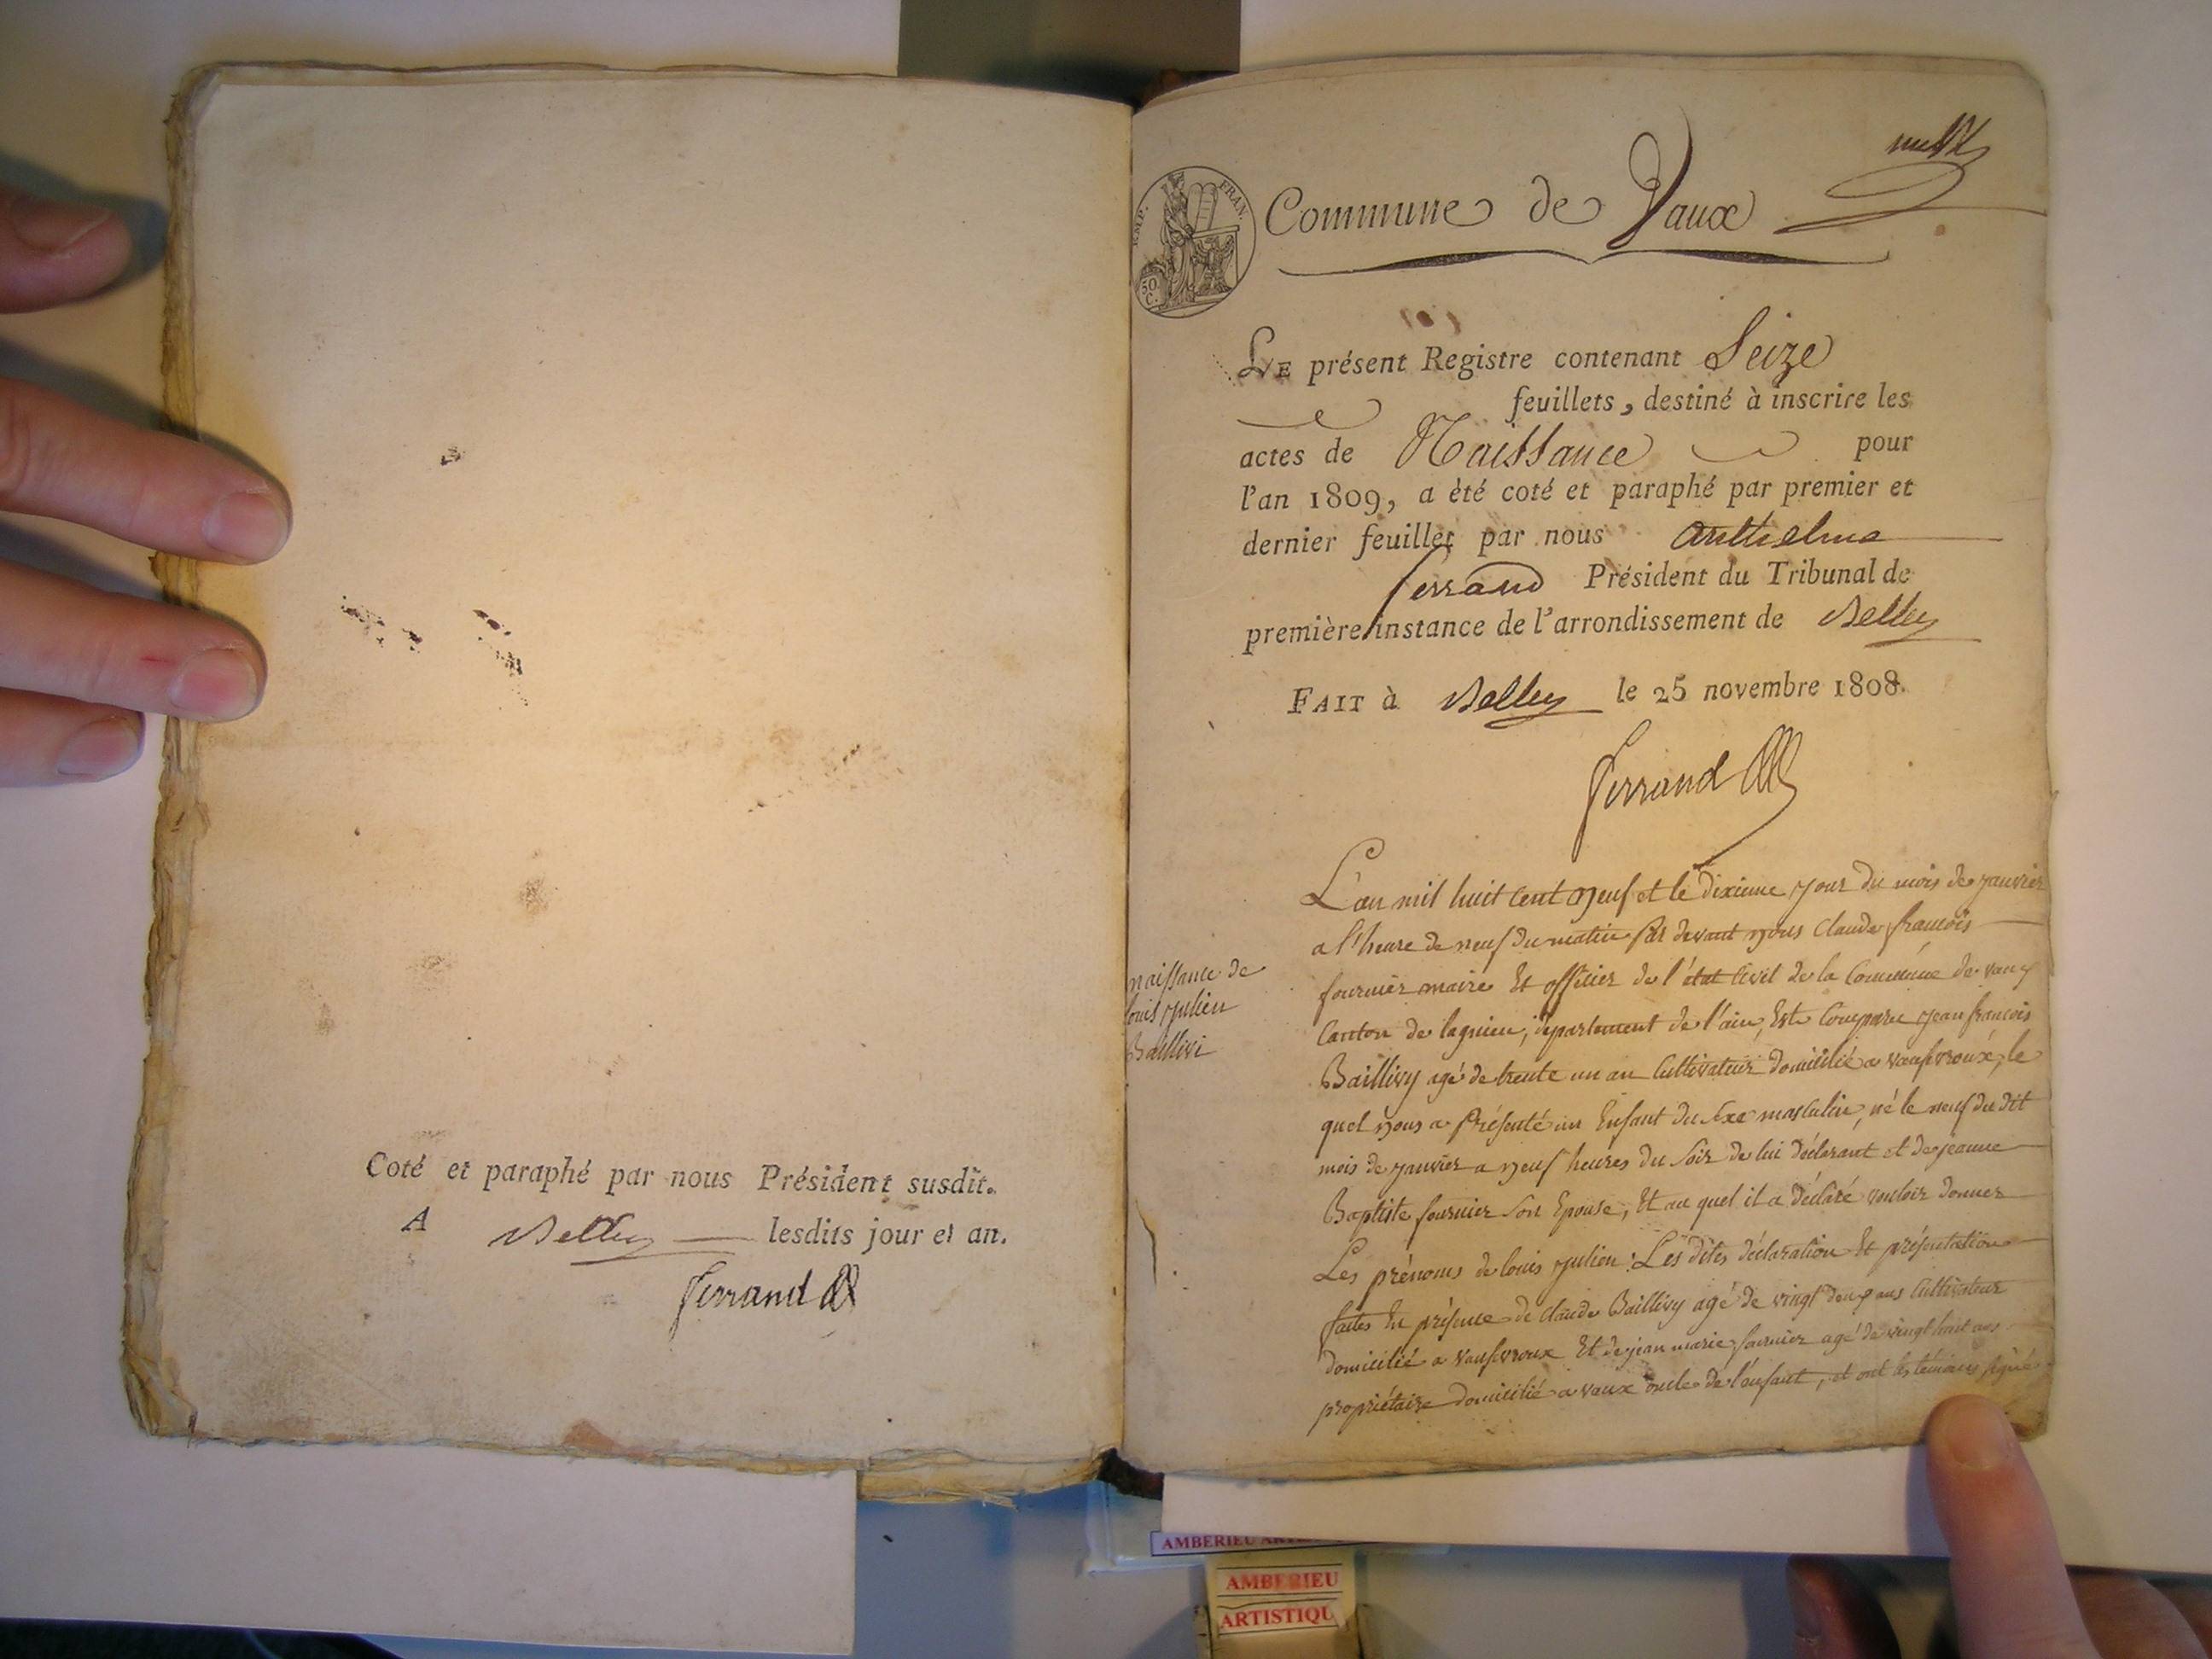 Coté et paraphé par nous Président susdit.
A Belley lesdits jour et an.
Ferrand
EMP. FRAN.
50 C.
Commune de Vaux
Le présent Registre contenant Seize
feuillets, destiné à inscrire les
actes de Naissance pour
l'an 1809, a été coté et paraphé par premier et
dernier feuillet par nous Anthelme
ferrand Président du Tribunal de
première instance de l'arrondissement de Belley
FAIT à Belley le 25 novembre 1808.
Ferrand
naissance de
louis julien
Baillivi
L'an mil huit cent neuf et le dixieme jour du mois de janvier
a l'heure de neuf du matin par devant nous Claude francois
fournier maire Et officier de l'état Civil de la Commune de vaux
Canton de lagnieu, département de l'ain, Est Comparu jean francois
Baillivy agé de trente un an Cultivateur domicilié a vaufevroux, le
quel nous a présenté un Enfant du sexe masculin, né le neuf du dit
mois de janvier a neuf heures du soir de lui déclarant et de jeanne
Baptiste fournier son Epouse, Et au quel il a déclaré vouloir donner
Les prénoms de louis julien : Les dites déclaration Et présentation
faites En présence de Claude Baillivy agé de vingt deux ans Cultivateur
domicilié a vaufevroux Et de jean marie fournier agé de vingt huit ans
propriétaire domicilié a vaux oncle de l'enfant, et ont les témoins signé
AMBERIEU
AMBERIEU
ARTISTIQU